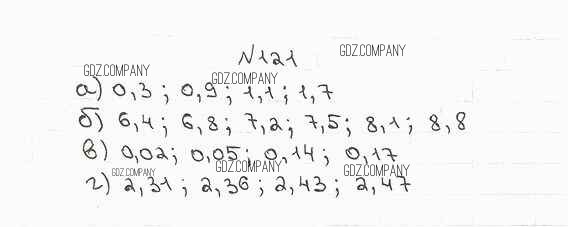 N121
GDZ.COMPANY
GDZ.COMPANY
GDZ.COMPANY
а) 0,3; 0,9; 1,1; 1,7
б) 6,4; 6,8; 7,2; 7,5; 8,1; 8,8
в) 0,02; 0,05; 0,14; 0,17
GDZ.COMPANY
GDZ.COMPANY
GDZ.COMPANY
г) 2,31; 2,36; 2,43; 2,47